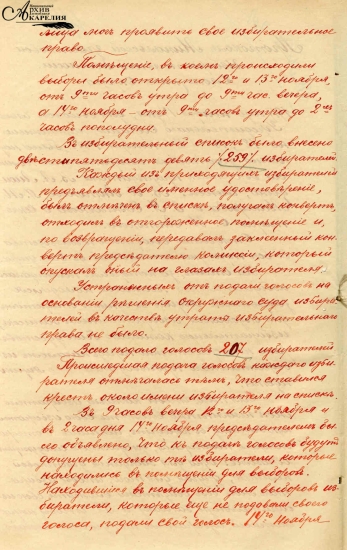 Архив
КАРЕЛИЯ
лица могъ проявить свое избирательное
право.
Помѣщеніе, въ коемъ происходили
выборы было открыто 12го и 13го Ноября,
отъ 9ти часовъ утра до 9ти час. вечера,
а 14го Ноября - отъ 9ти часовъ утра до 2хъ
часовъ пополудни.
Въ избирательный списокъ было внесено
двѣстипятьдесятъ девять /259/ избирателей.
Каждый изъ приходящихъ избирателей
предъявлялъ свое именное удостовѣреніе,
былъ отмѣченъ въ спискѣ, получалъ конвертъ,
отходилъ въ отгороженное помѣщеніе и,
по возвращеніи, передавалъ заклеенный кон-
вертъ предсѣдателю комиссіи, который
опускалъ оный на глазахъ избирателя.
Устраненнымъ отъ подачи голосовъ на
основаніи рѣшенія окружнаго суда избира-
телей въ качествѣ утрата избирательнаго
права не было.
Всего подало голосовъ 207 избирателей
Происшедшая подача голоса каждаго изби-
рателя отмѣчалась тѣмъ, что ставился
крестъ около имени избирателя на спискѣ.
Въ 9 часовъ вечера 12го и 13го Ноября и
въ 2 часа дня 14го Ноября предсѣдателемъ бы-
ло объявлено, что къ подачѣ голосовъ будутъ
допущены только тѣ избиратели, которые
находились въ помѣщеніи для выборовъ.
Находившіеся въ помѣщеніи для выборовъ из-
биратели, которые еще не подавали своего
голоса, подали свой голосъ. 14го Ноября